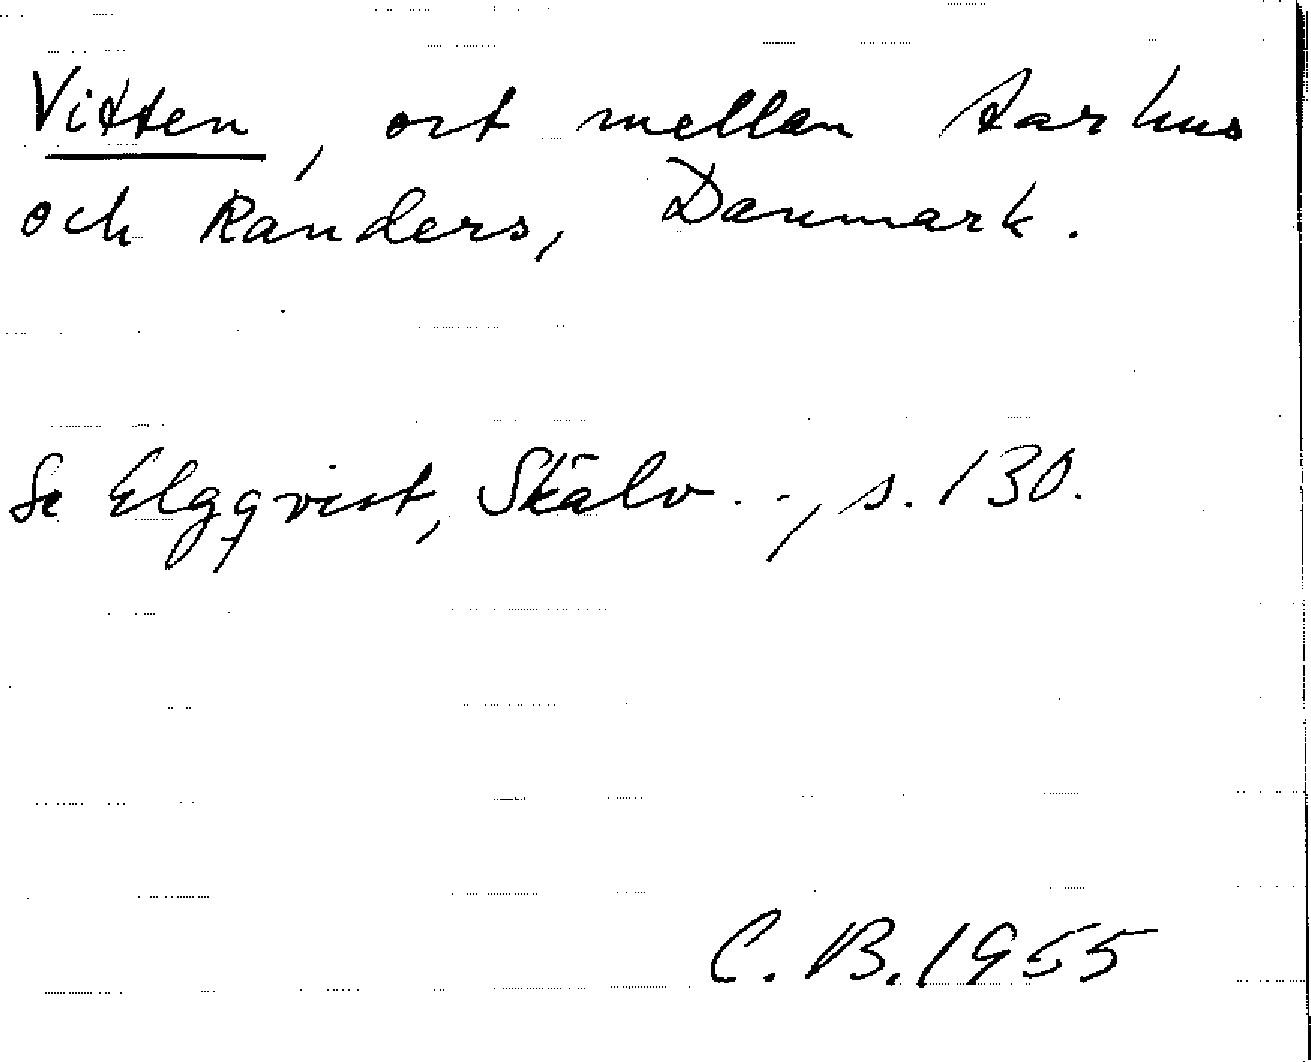 Vitten, ort mellan Aarhus
och Randers, Danmark.
Se Elgqvist, Skälv..., s. 130.
C. B. 1955